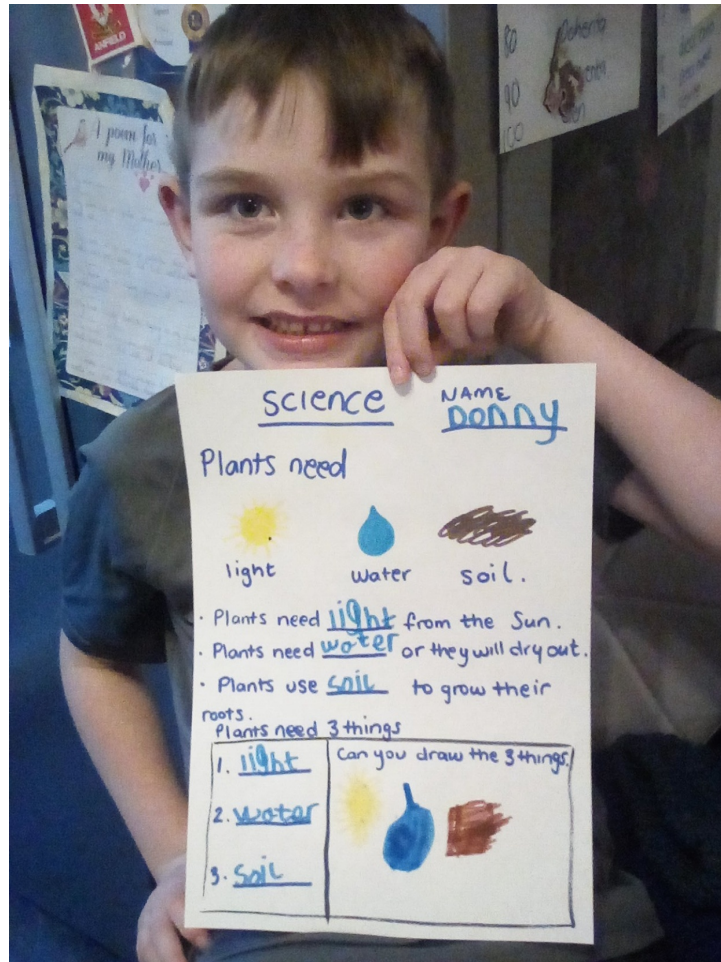 ANFIELD
A poem for
my Mother
80
90
100
Doherty
science
NAME
Donny
Plants need
light
water
soil.
· Plants need light from the Sun.
· Plants need water or they will dry out.
· Plants use soil to grow their
roots.
Plants need 3 things
1. light
2. water
3. soil
Can you draw the 3 things.